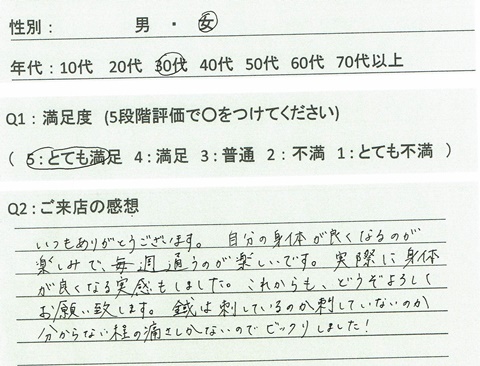 性別： 男 ・ 女
年代：10代 20代 30代 40代 50代 60代 70代以上
Q1：満足度 (5段階評価で〇をつけてください)
（ 5：とても満足 4：満足 3：普通 2：不満 1：とても不満 ）
Q2：ご来店の感想
いつもありがとうございます。 自分の身体が良くなるのが
楽しみで、毎週通うのが楽しいです。実際に身体
が良くなる実感もしました。これからも、どうぞよろしく
お願い致します。 鍼は刺しているのか刺していないのか
分からない程の痛さしかないのでビックリしました！